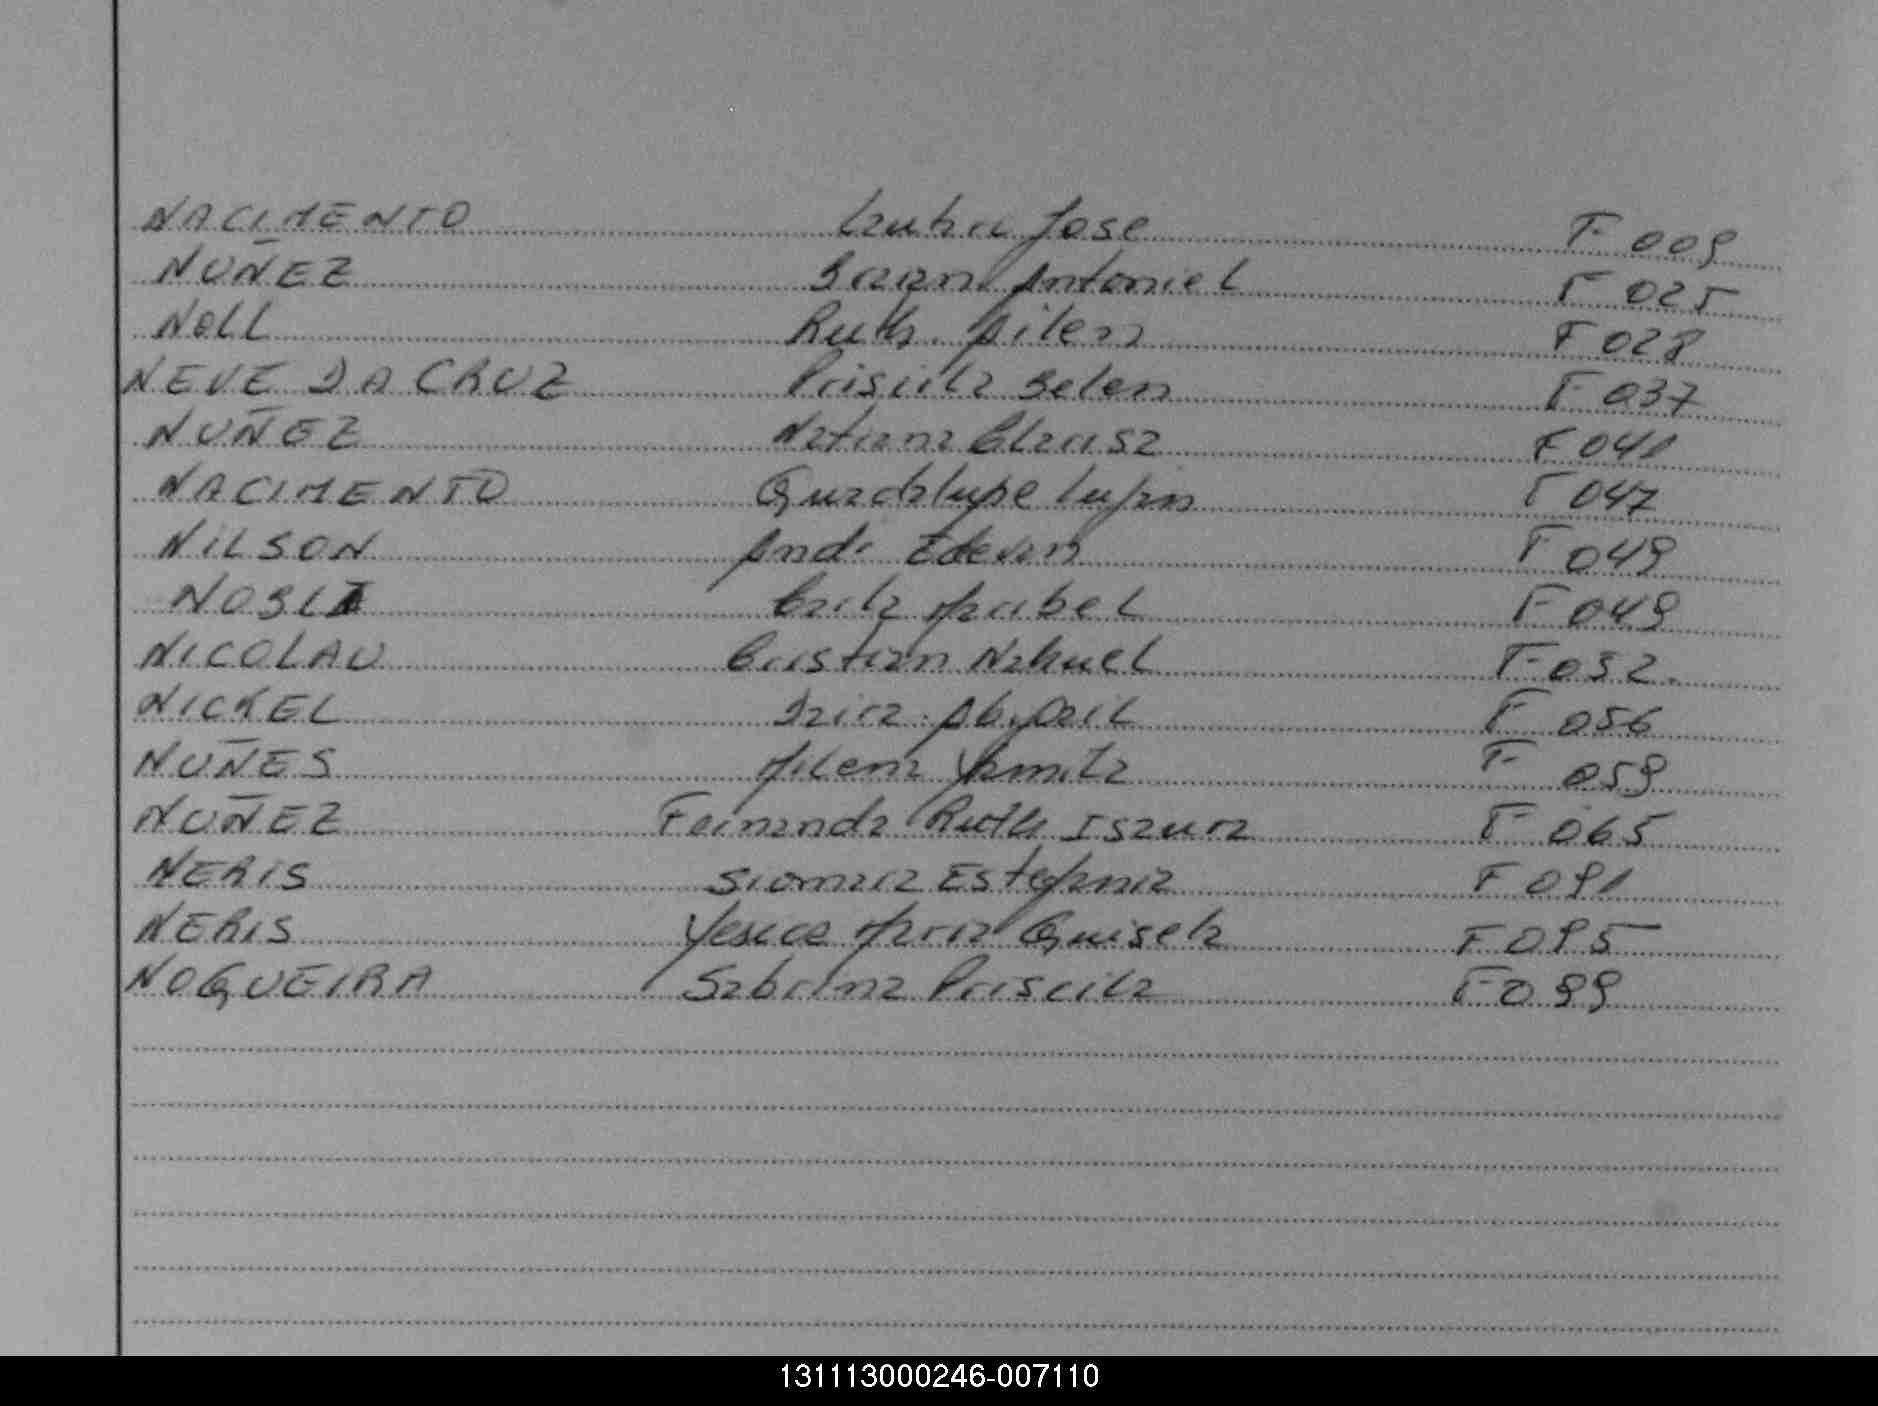 NACIMENTO Jose F 009
NUÑEZ Braian Antoniel F 025
NOLL Ruth Ailen F 028
NEVE DA CRUZ Priscila Belen F 037
NUÑEZ F 041
NACIMENTO Guadalupe Lujan F 047
NILSON F 049
Mabel F 049
NICOLAU Cristian Nahuel F 052
NICKEL Abigail F 056
NUÑES Milena Yamila F 059
NUÑEZ Fernanda Ruth Isaura F 065
NERIS Siomara Estefania F 091
NERIS Maria Guisela F 095
NOGUEIRA Sabrina Priscila F 099
131113000246-007110